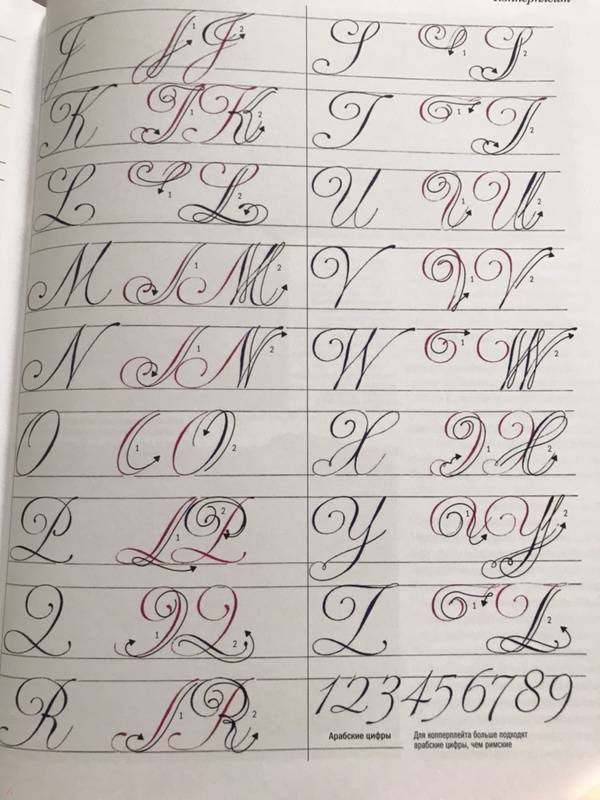 Копперплейт
J 1 J 2
K 1 K 2
L 1 L 2
M 1 M 2
N 1 N 2
O 1 O 2
P 1 P 2
Q 1 Q 2
R 1 R 2
S 1 S 2
T 1 T 2
U 1 U 2
V 1 V 2
W 1 W 2
X 1 X 2
Y 1 Y 2
Z 1 Z 2
123456789
Арабские цифры
Для копперплейта больше подходят
арабские цифры, чем римские